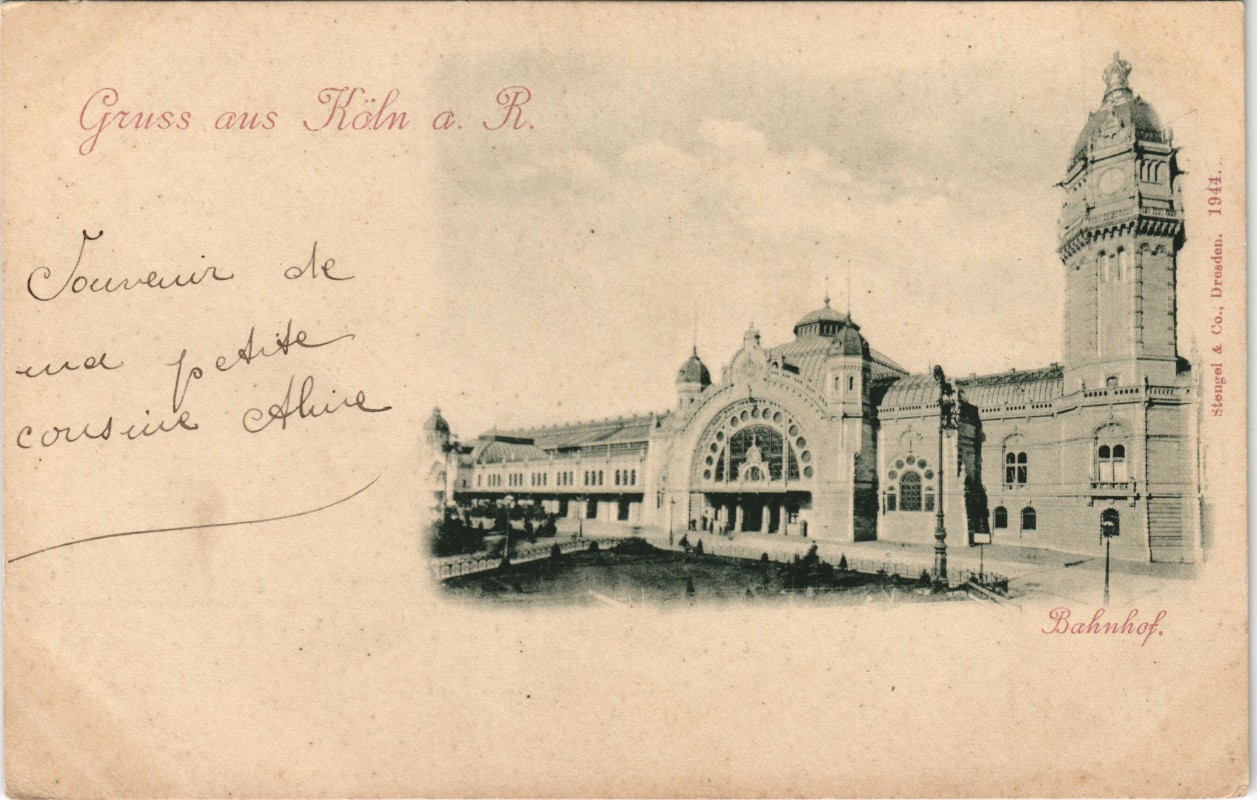 Gruss aus Köln a. R.
Souvenir de
ma petite
cousine Aline
Stengel & Co., Dresden. 1944.
Bahnhof.